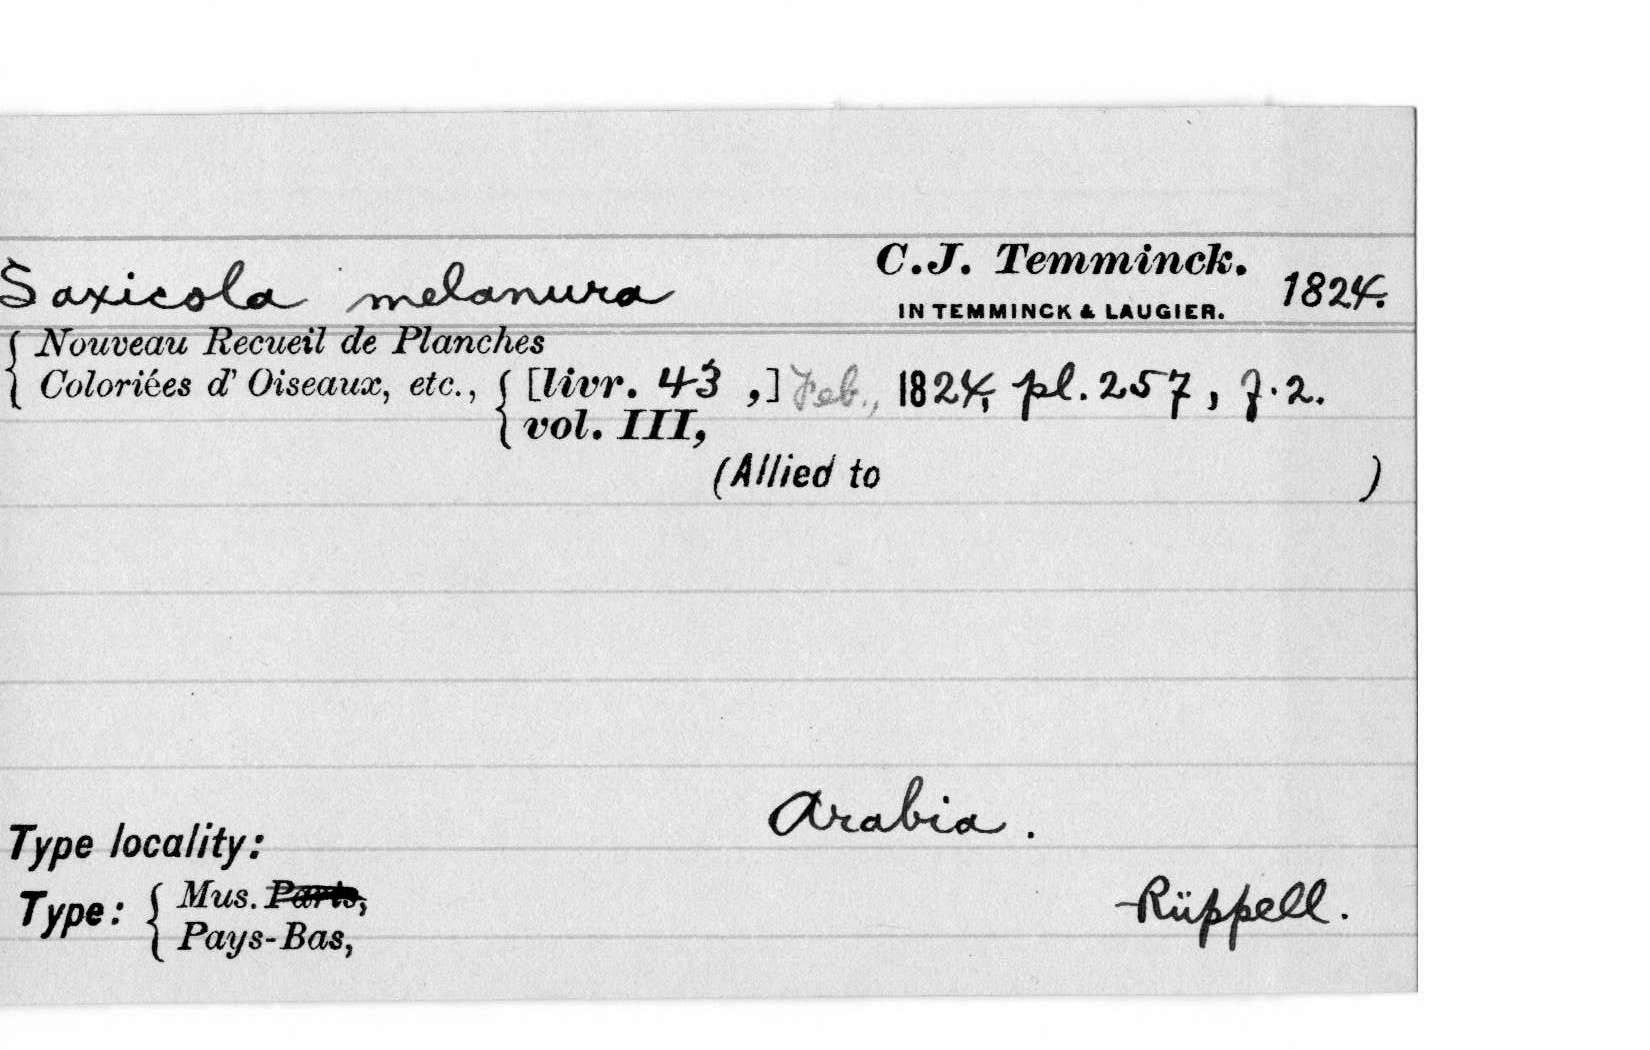 Saxicola melanura C.J. Temminck. 1824.
IN TEMMINCK & LAUGIER.
Nouveau Recueil de Planches
Coloriées d' Oiseaux, etc., [livr. 43 ,] Feb., 1824, pl. 257, f. 2.
vol. III,
(Allied to )
Arabia.
Type locality:
Type: Mus. Paris, Rüppell.
Pays-Bas,